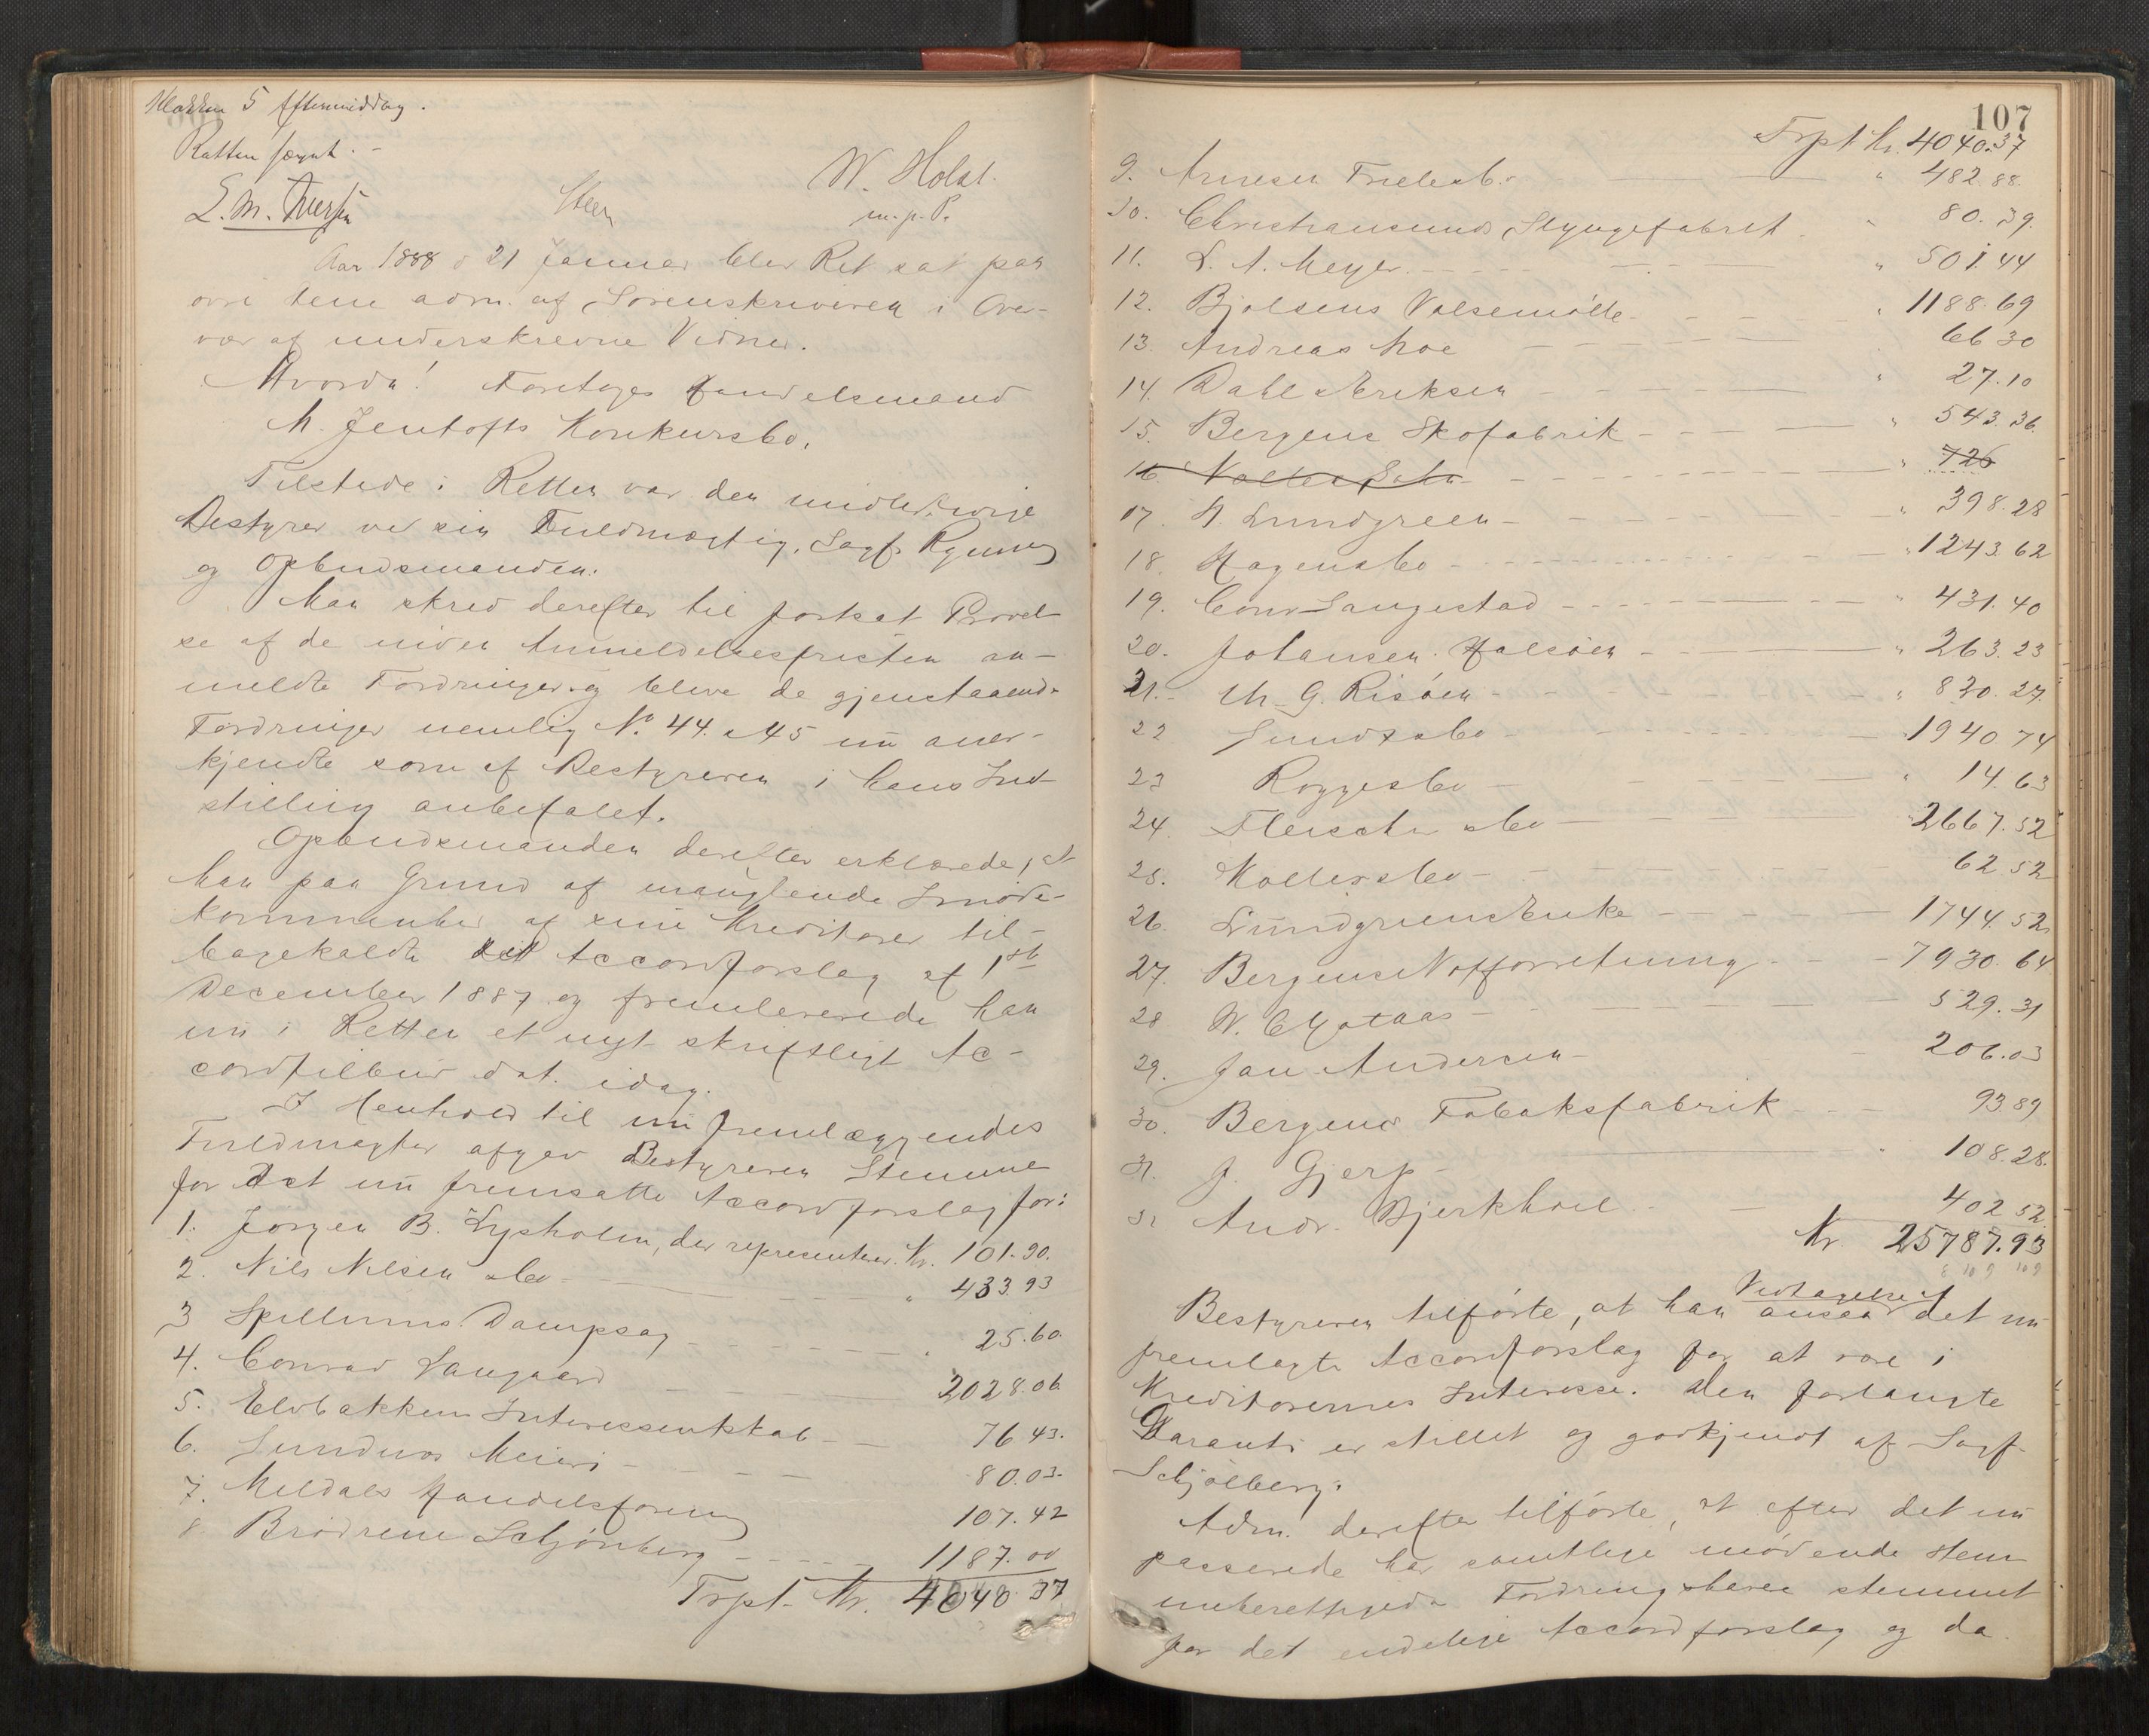 Klokken 5 Eftermiddag.
Retten hævet. -
W. Holst.
L. M. Iversen Steen m. p. P.
Aar 1888 d 21 Januar blev Ret sat paa
ovre tene adm. af Sorenskriveren i Over-
vær af underskrevne Vidner.
Hvorda! Foretoges Handelsmand
M. Jentofts Konkursbo.
Tilstede i Retten var den midlertidige
Bestyrer ved sin Fuldmægtig, Sagf. Rynning
og Opbudsmanden.
Man skred derefter til fortsat Prøvel-
se af de inden Anmeldelsesfristen an-
meldte Fordringer og bleve de gjenstaaende
Fordringer nemlig No. 44. & 45 nu aner-
kjendte som af Bestyreren i hans Ind-
stilling anbefalet.
Opbudsmanden derefter erklærede, at
han paa Grund af manglende Imøde-
kommenhed af sine Kreditorer til-
bagekaldte det Accordforslag af 1ste
December 1887 og fremleverede han
nu i Retten et nyt skriftligt Ac-
cordtilbud dat. idag.
I Henhold til nu fremlæggendes
Fuldmagter afgav Bestyreren Stemme
for det nu fremsatte Accordforslag for:
1. Jørgen B. Lysholm, der representerer Kr. 101.90.
2. Nils Nilsen sbo - " 433.93
3 Spillums Dampsag - " 25.60.
4. Conrad Langaard - 2028.06
5. Elvbakkens Interessentskab - 76 43.
6. Sundnæs Meieri - 80.03.
7. Meldals Handelsforening 107.42
8 Brødrene Schjønberg - 1187.00
Trpt. Kr. 4040 37
107
Trpt Kr. 4040.37
9. Arnesen Frielesb. - " 482.88.
10. Christiansunds Slyngefabrik - " 80.39.
11. L. A. Meyer. - " 501.44
12. Bjølsens Valsemølle - " 1188.69
13. Andreas Moe - 66 30
14. Dahl & Eriksen - " 27.10
15. Bergens Skofabrik - " 543.36.
16 - " 726
17. H. Lundgreen - " 398.28
18. Hagensbo - " 1243.62
19. Conr Langestad - " 431.40
20. Johansen Halsøen - " 263.23
21. - Chr. G. Risøen - " 830.27.
22 Lundtsbo - " 1940 74
23 Roggesbo - " 14.63
24. Fleischer sbo - " 2667.52
25. Møllersbo - 62 52
26. Lundgreens Enke - 1744.52
27. Bergens Notforretning - 7930.64
28 W. C. Gotaas - 529.31
29. Jan Andersen - 206.03
30. Bergens Tobaksfabrik - 93.89
31. J. Gjerp - " 108.28.
32 Andr. Bjerkhoel - 402 52.
Kr. 25787.93
Vedtagelse af
Bestyreren tilførte, at han ansaa det nu
fremlagte Accordforslag for at være i
Kreditorernes Interesse. Den forlangte
Garanti er stillet og godkjendt af Sagf.
Schjølberg.
Adm. derefter tilførte, at efter det nu
passerede har samtlige mødende stem-
meberettigede Fordringshavere stemmet
for det endelige Accordforslag og da